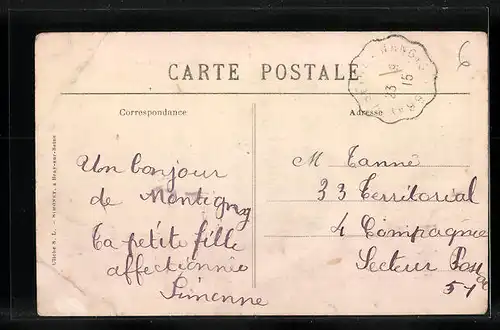 CARTE POSTALE
Correspondance
Adresse
Un bonjour
de Montigny
Ta petite fille
affectionnée
Simonne
M Tanné
33 Territorial
4 Compagnie
Secteur Postal
51
Cliché S. L. — SIMONET, à Bray-sur-Seine
NANGIS
23
15
6